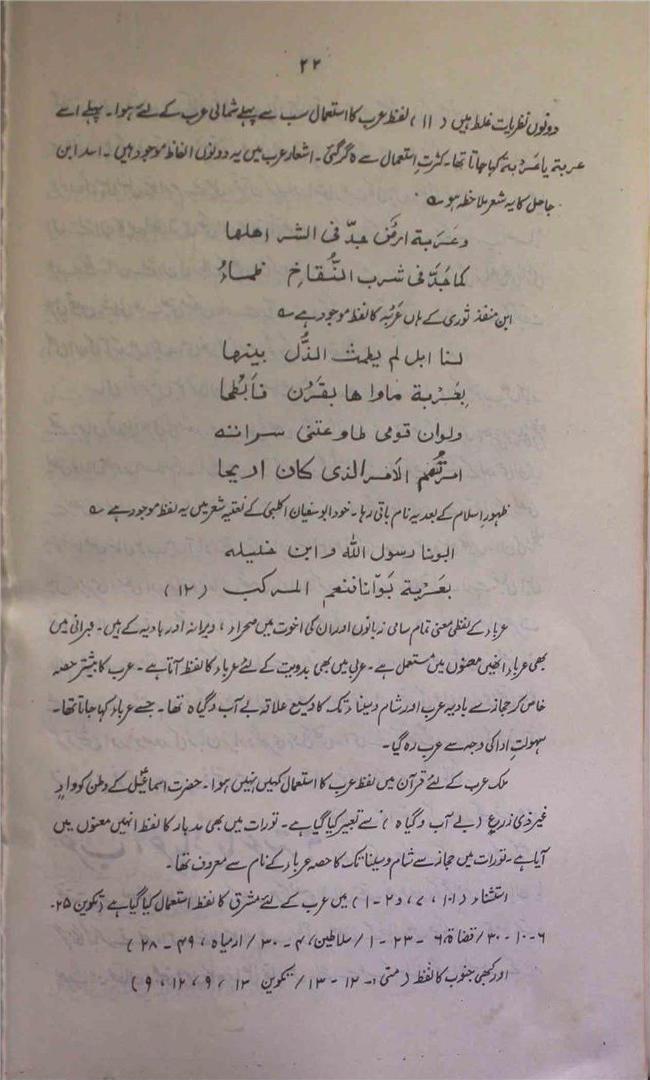 ۲۲
دونوں نظریات غلط ہیں (۱۱) لفظ عرب کا استعمال سب سے پہلے شمالی عرب کے لئے ہوا۔ پہلے اسے
عربتہ یا عَرْبَۃ کہا جاتا تھا۔ کثرتِ استعمال سے ہ گر گئی۔ اشعار عرب میں یہ دونوں الفاظ موجود ہیں۔ اسد ابن
جاحل کا یہ شعر ملاحظہ ہو ؎
وعَرَبة ارض جدّ فی الشر اهلها
کما جُدَّ فی شرب النُّقاخِ ظماءُ
ابن منقذ ثوری کے ہاں عَرَبۃ کا لفظ موجود ہے ؎
لنا ابل لم یطمث الذُّل بینها
بِعَرْبة ماواها بقَرْن فابْطحا
ولو ان قومی طاوعتنی سراته
امرتُهم الامر الذی کان اریحا
ظہورِ اسلام کے بعد یہ نام باقی رہا۔ خود ابوسفیان اکلبی کے نعتیہ شعر میں یہ لفظ موجود ہے ؎
ابونا رسول الله وابن خلیله
بعَرْبة بوّانا فنعم المرکب (۱۲)
عرباء کے لفظی معنی تمام سامی زبانوں اور ان کی اخوت میں صحراء، ویرانہ اور بادیہ کے ہیں۔ عبرانی میں
بھی عرباء انھیں معنوں میں مستعمل ہے۔ عربی میں بھی بدویت کے لئے عرباء کا لفظ آتا ہے۔ عرب کا بیشتر حصہ
خاص کر حجاز سے بادیہ عرب اور شام و سیناء تک کا وسیع علاقہ بے آب و گیاہ تھا۔ جسے عرباء کہا جاتا تھا۔
سہولتِ ادا کی وجہ سے عرب رہ گیا۔
ملک عرب کے لئے قرآن میں لفظ عرب کا استعمال کہیں نہیں ہوا۔ حضرت اسماعیلؑ کے وطن کو وادٍ
غیر ذی زرع (بے آب و گیاہ) سے تعبیر کیا گیا ہے۔ تورات میں بھی مدبار کا لفظ انہیں معنوں میں
آیا ہے۔ تورات میں حجاز سے شام و سینا تک کا حصہ عرباء کے نام سے معروف تھا۔
استثناء (۱۰۱، ۷، و ۲-۱) میں عرب کے لئے مشرق کا لفظ استعمال کیا گیا ہے (تکوین ۲۵۔
۶-۱۰-۳۰/ قضاۃ، ۶-۲۳-۱/ سلاطین، ۴-۳۰/ ارمیاہ، ۴۹-۲۸)
اور کبھی جنوب کا لفظ (متی:۔ ۱۲-۱۳/ تکوین ۱۳، ۹، ۱۲، ۹)